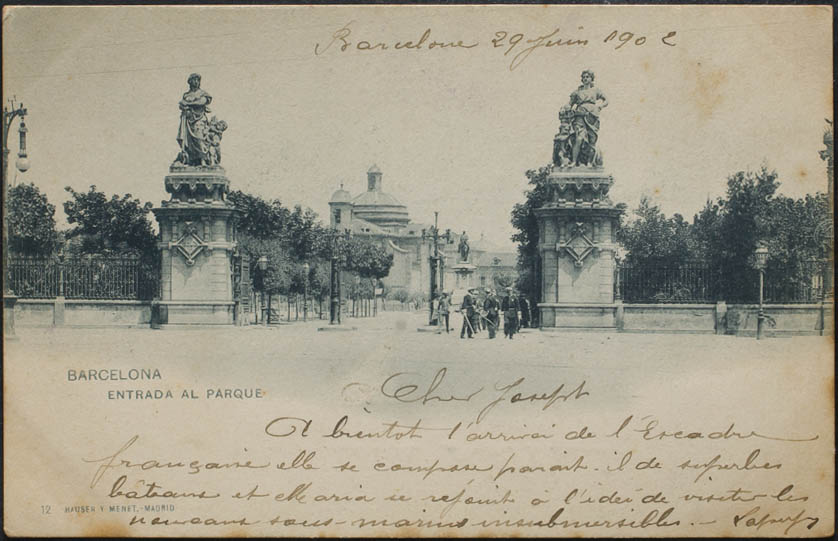 Barcelone 29 Juin 1902
BARCELONA
ENTRADA AL PARQUE
Cher Joseph
A bientôt l'arrivéi de l'Escadre
française elle se compose parait-il de superbes
bâteaux et Maria se rejouit à l'ideí de visiter les
nouveaux sous-marins insubmersibles. -
12 HAUSER Y MENET.-MADRID